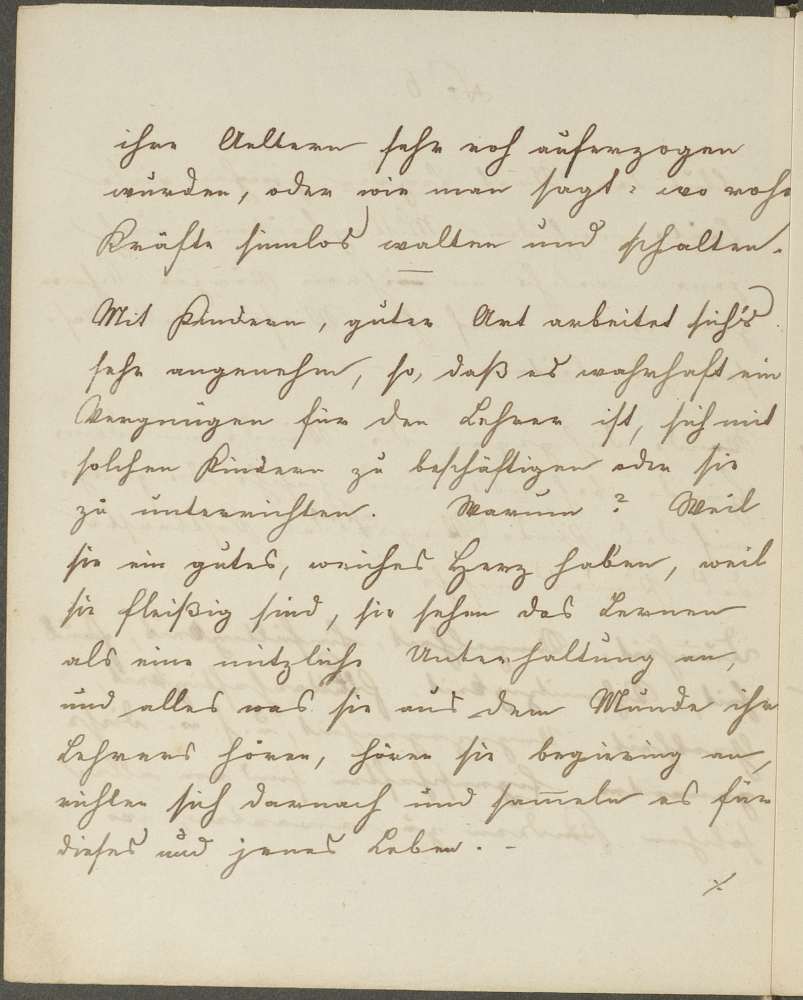 ihre Aeltern sehr roh auferzogen
wurden, oder wie man sagt: wo rohe
Kräfte sinnlos walten und schalten.
Mit Kindern, guter Art arbeitet sich's
sehr angenehm, so, daß es wahrhaft ein
Vergnügen für den Lehrer ist, sich mit
solchen Kindern zu beschäftigen oder sie
zu unterrichten. Warum? Weil
sie ein gutes, weiches Herz haben, weil
sie fleißig sind, sie sehen das Lernen
als eine nützliche Unterhaltung an,
und alles was sie aus dem Munde ihr
Lehrers hören, hören sie begierig an,
richten sich darnach und sammeln es für
dieses und jenes Leben. -